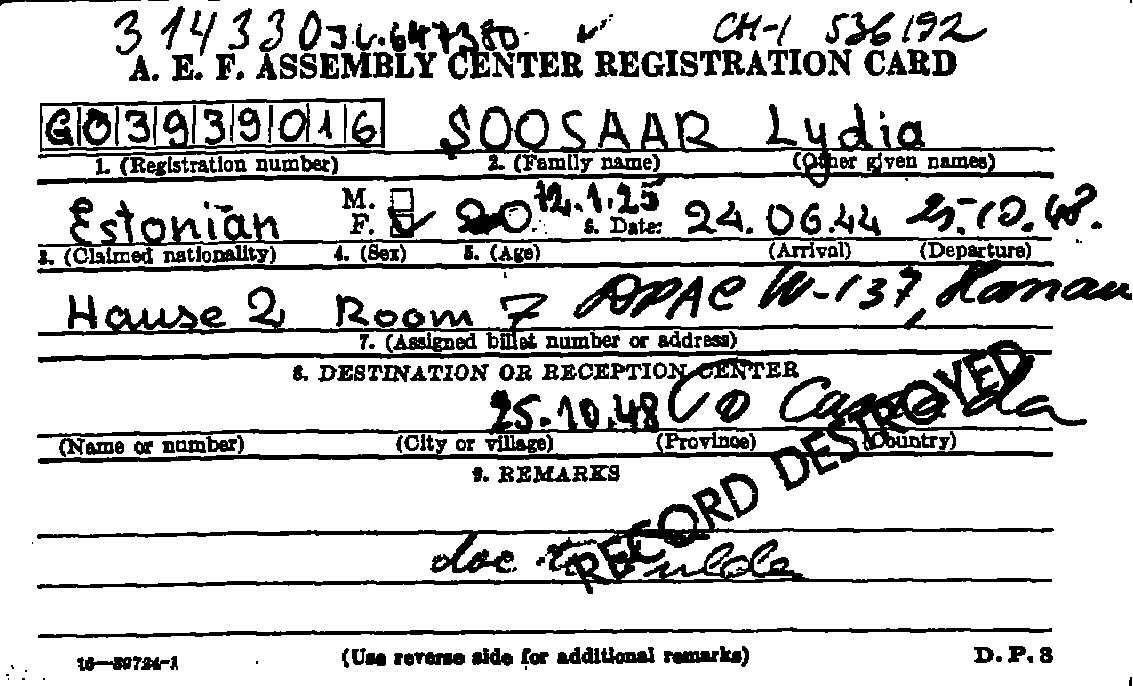 314330 JL.647380 ✓ CH-1 536192
A. E. F. ASSEMBLY CENTER REGISTRATION CARD
G03939016 SOOSAAR Lydia
1. (Registration number) 2. (Family name) (Other given names)
M. 12.1.25
Estonian F. 20 6. Date: 24.06.44 25.10.48.
3. (Claimed nationality) 4. (Sex) 5. (Age) (Arrival) (Departure)
Hause 2 Room 7 DPAC W-137, Hanau
7. (Assigned billet number or address)
8. DESTINATION OR RECEPTION CENTER
25.10.48 to Canada
(Name or number) (City or village) (Province) (Country)
9. REMARKS
RECORD DESTROYED
doc
16—39724-1 (Use reverse side for additional remarks) D.P.3